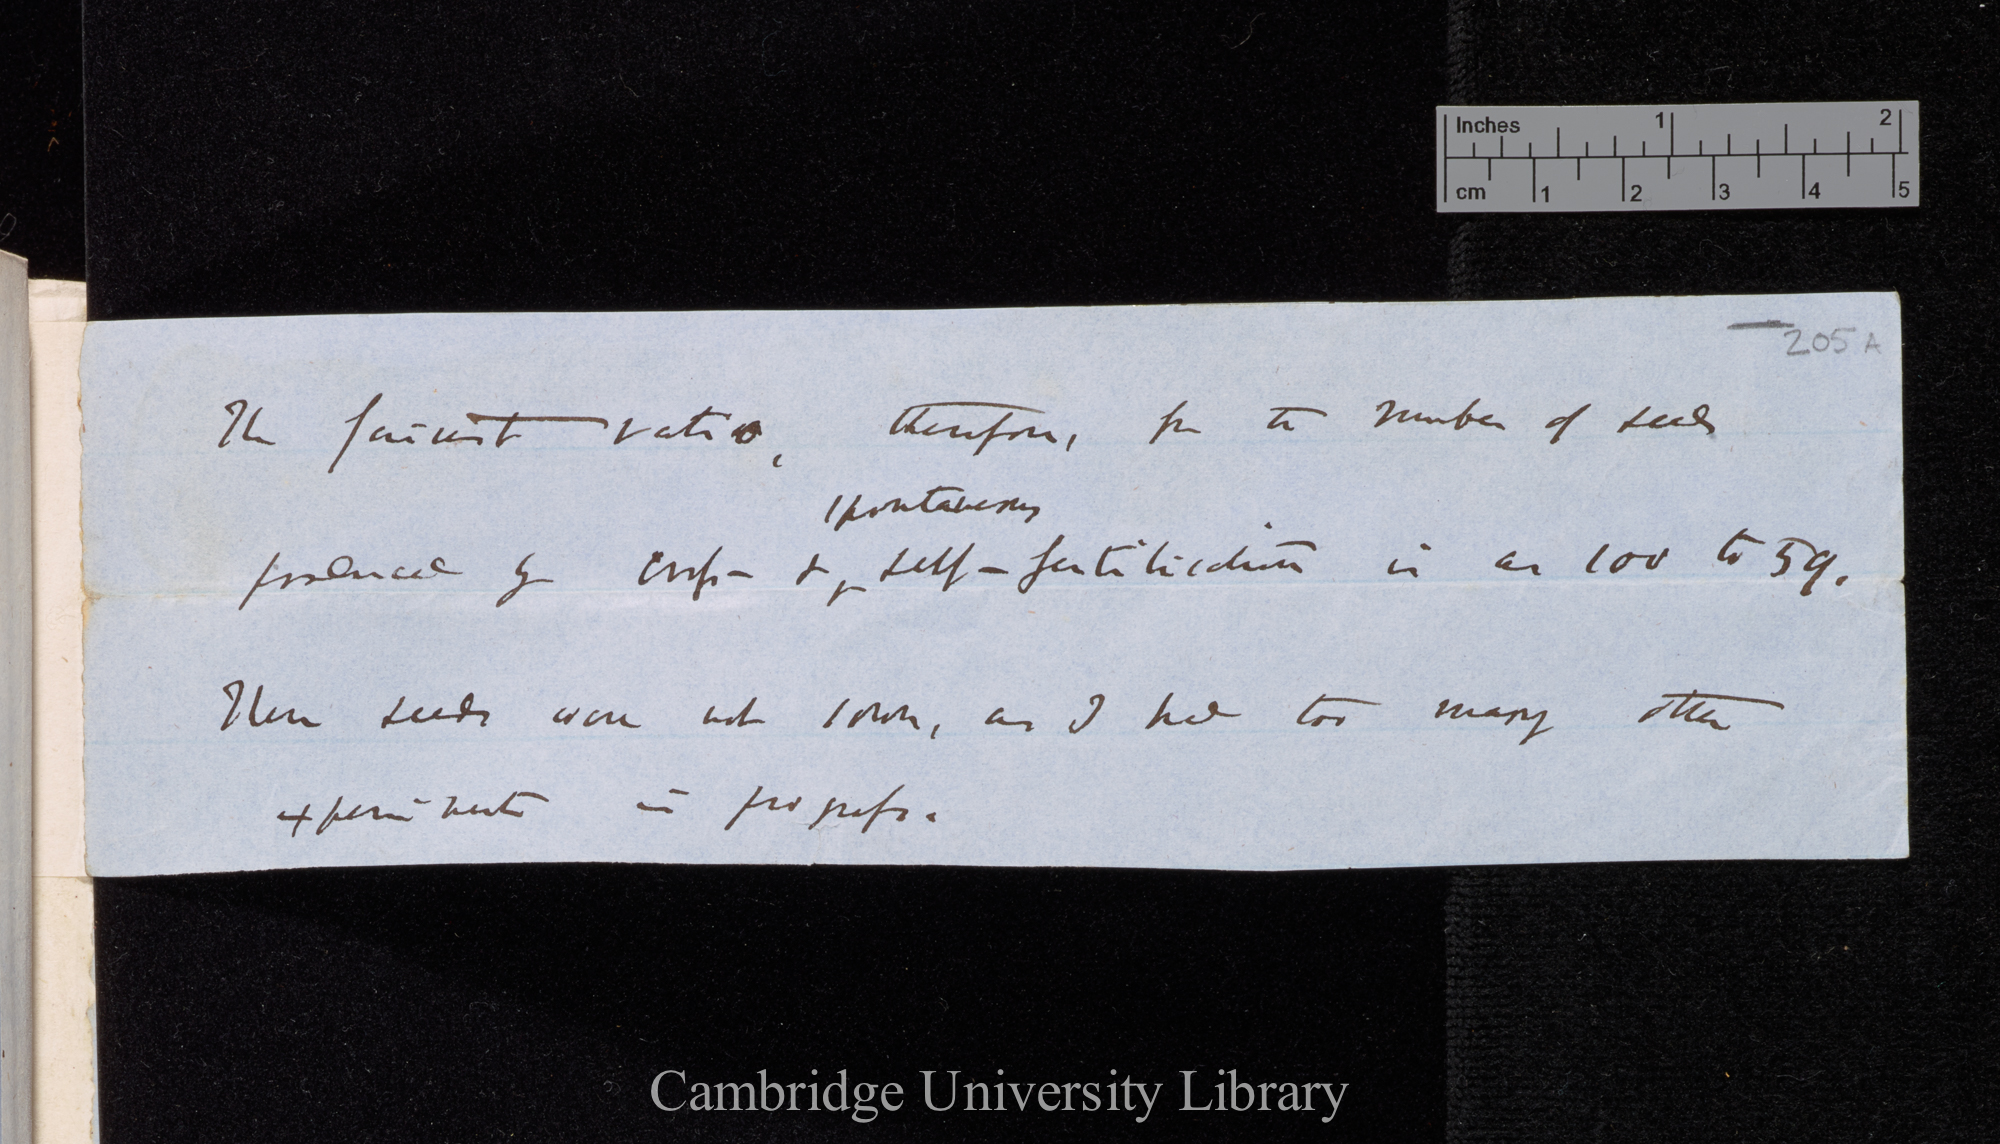 Inches 1 2
cm 1 2 3 4 5
205 A
The fairest ratio, therefore, for the number of seeds
spontaneous
produced by cross- & self-fertilisation is as 100 to 59.
These seeds were not sown, as I had too many other
experiments in progress.
Cambridge University Library